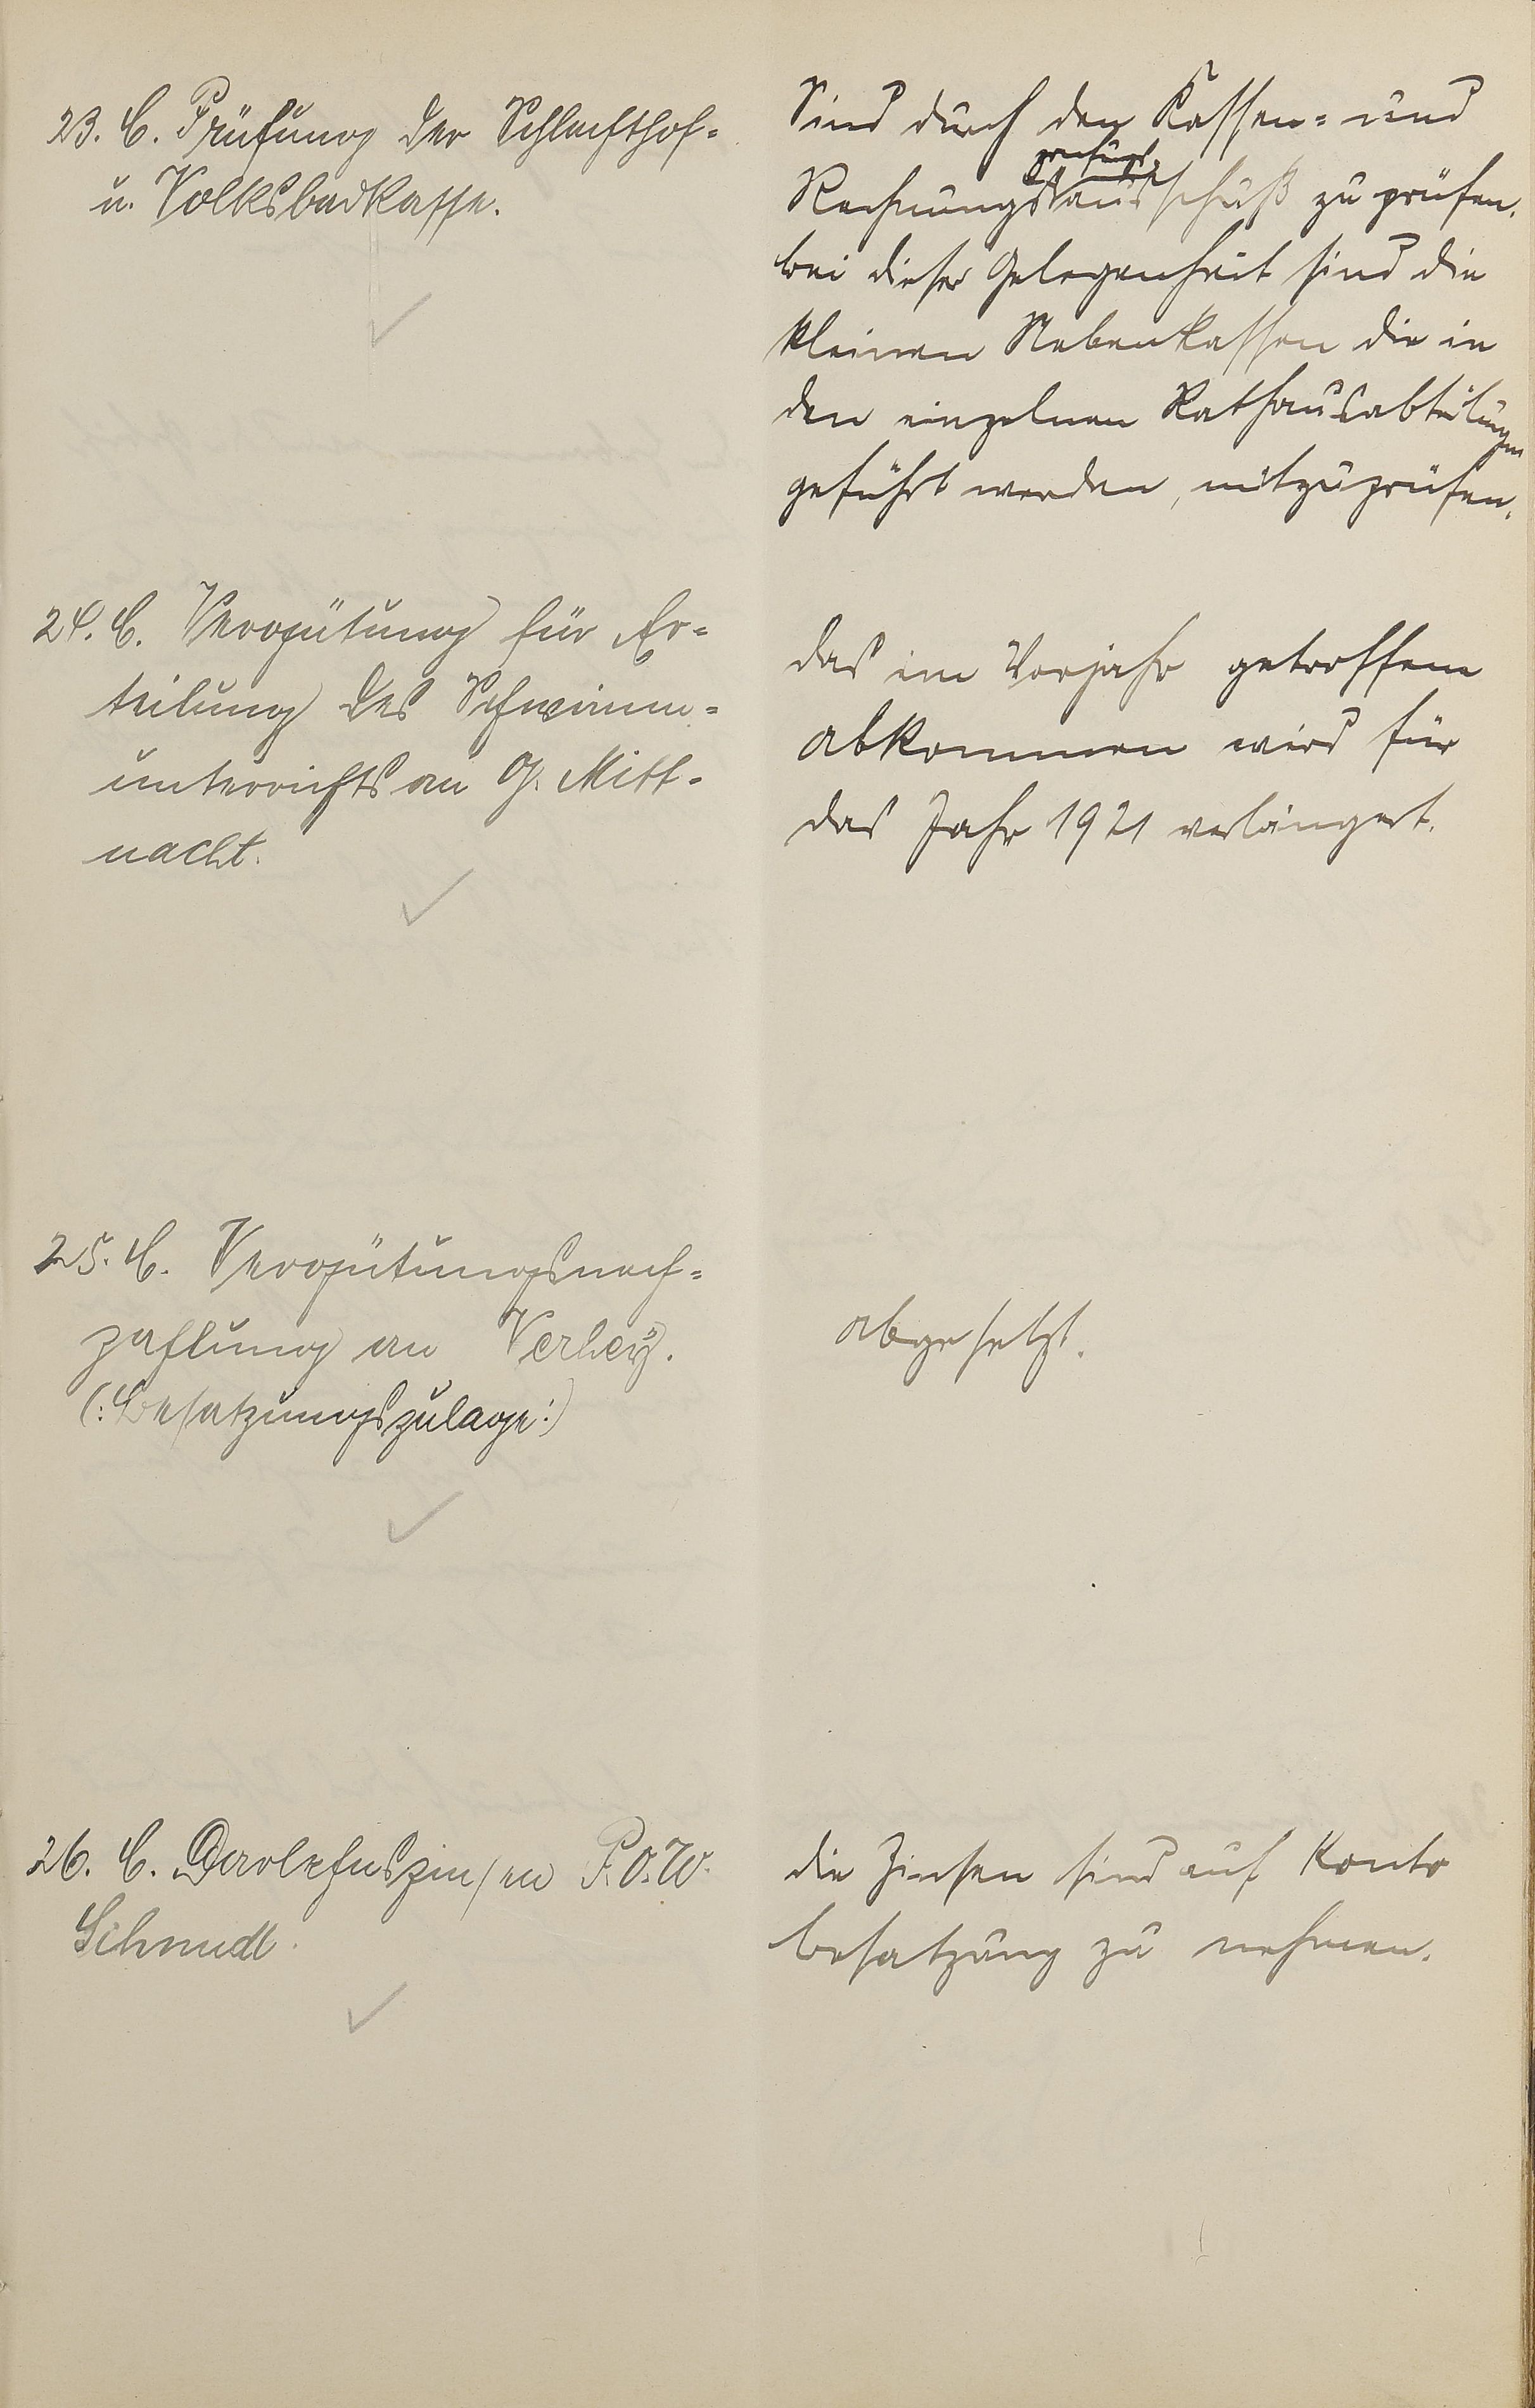 23. C. Prüfung der Schlachthof-
u. Volksbadkasse.
Sind durch den Kassen- und
prüfungs
Rechnungsausschuß zu prüfen.
bei dieser Gelegenheit sind die
kleinen Nebenkassen die in
den einzelnen Rathausabteilungen
geführt werden, mitzuprüfen.
24. C. Vergütung für Er-
teilung des Schwimm-
unterrichts an G. Mitt-
nacht.
das im Vorjahr getroffene
abkommen wird für
das Jahr 1921 verlängert.
25. C. Vergütungsnach-
zahlung an Verhey.
(: Besatzungszulage :)
abgesetzt.
26. C. Darlehnszinsen P.O.W.
Schmidt.
die Zinsen sind auf Konto
besatzung zu nehmen.